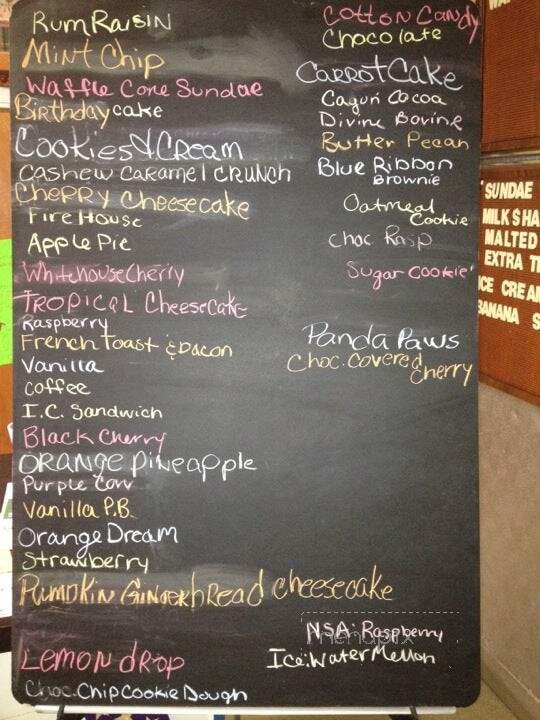 Rum Raisin
Mint Chip
Waffle Cone Sundae
Birthday cake
Cookies & Cream
Cashew Caramel Crunch
Cherry Cheesecake
Fire House
Apple Pie
Whitehouse Cherry
Tropical Cheesecake
Raspberry
French Toast & Bacon
Vanilla
Coffee
I.C. Sandwich
Black Cherry
Orange Pineapple
Purple Cow
Vanilla P.B.
Orange Dream
Strawberry
Pumkin Gingerbread Cheesecake
Lemon drop
Choc. Chip Cookie Dough
Cotton Candy
Chocolate
Carrot Cake
Cayun Cocoa
Divine Bovine
Butter Pecan
Blue Ribbon
Brownie
Oatmeal
Cookie
Choc Rasp
Sugar Cookie
Panda Paws
Choc. Covered
Cherry
NSA: Raspberry
menupix
Ice: Water Mellon
SUNDAE
MILKSHA
MALTED
EXTRA T
ICE CREA
BANANA S